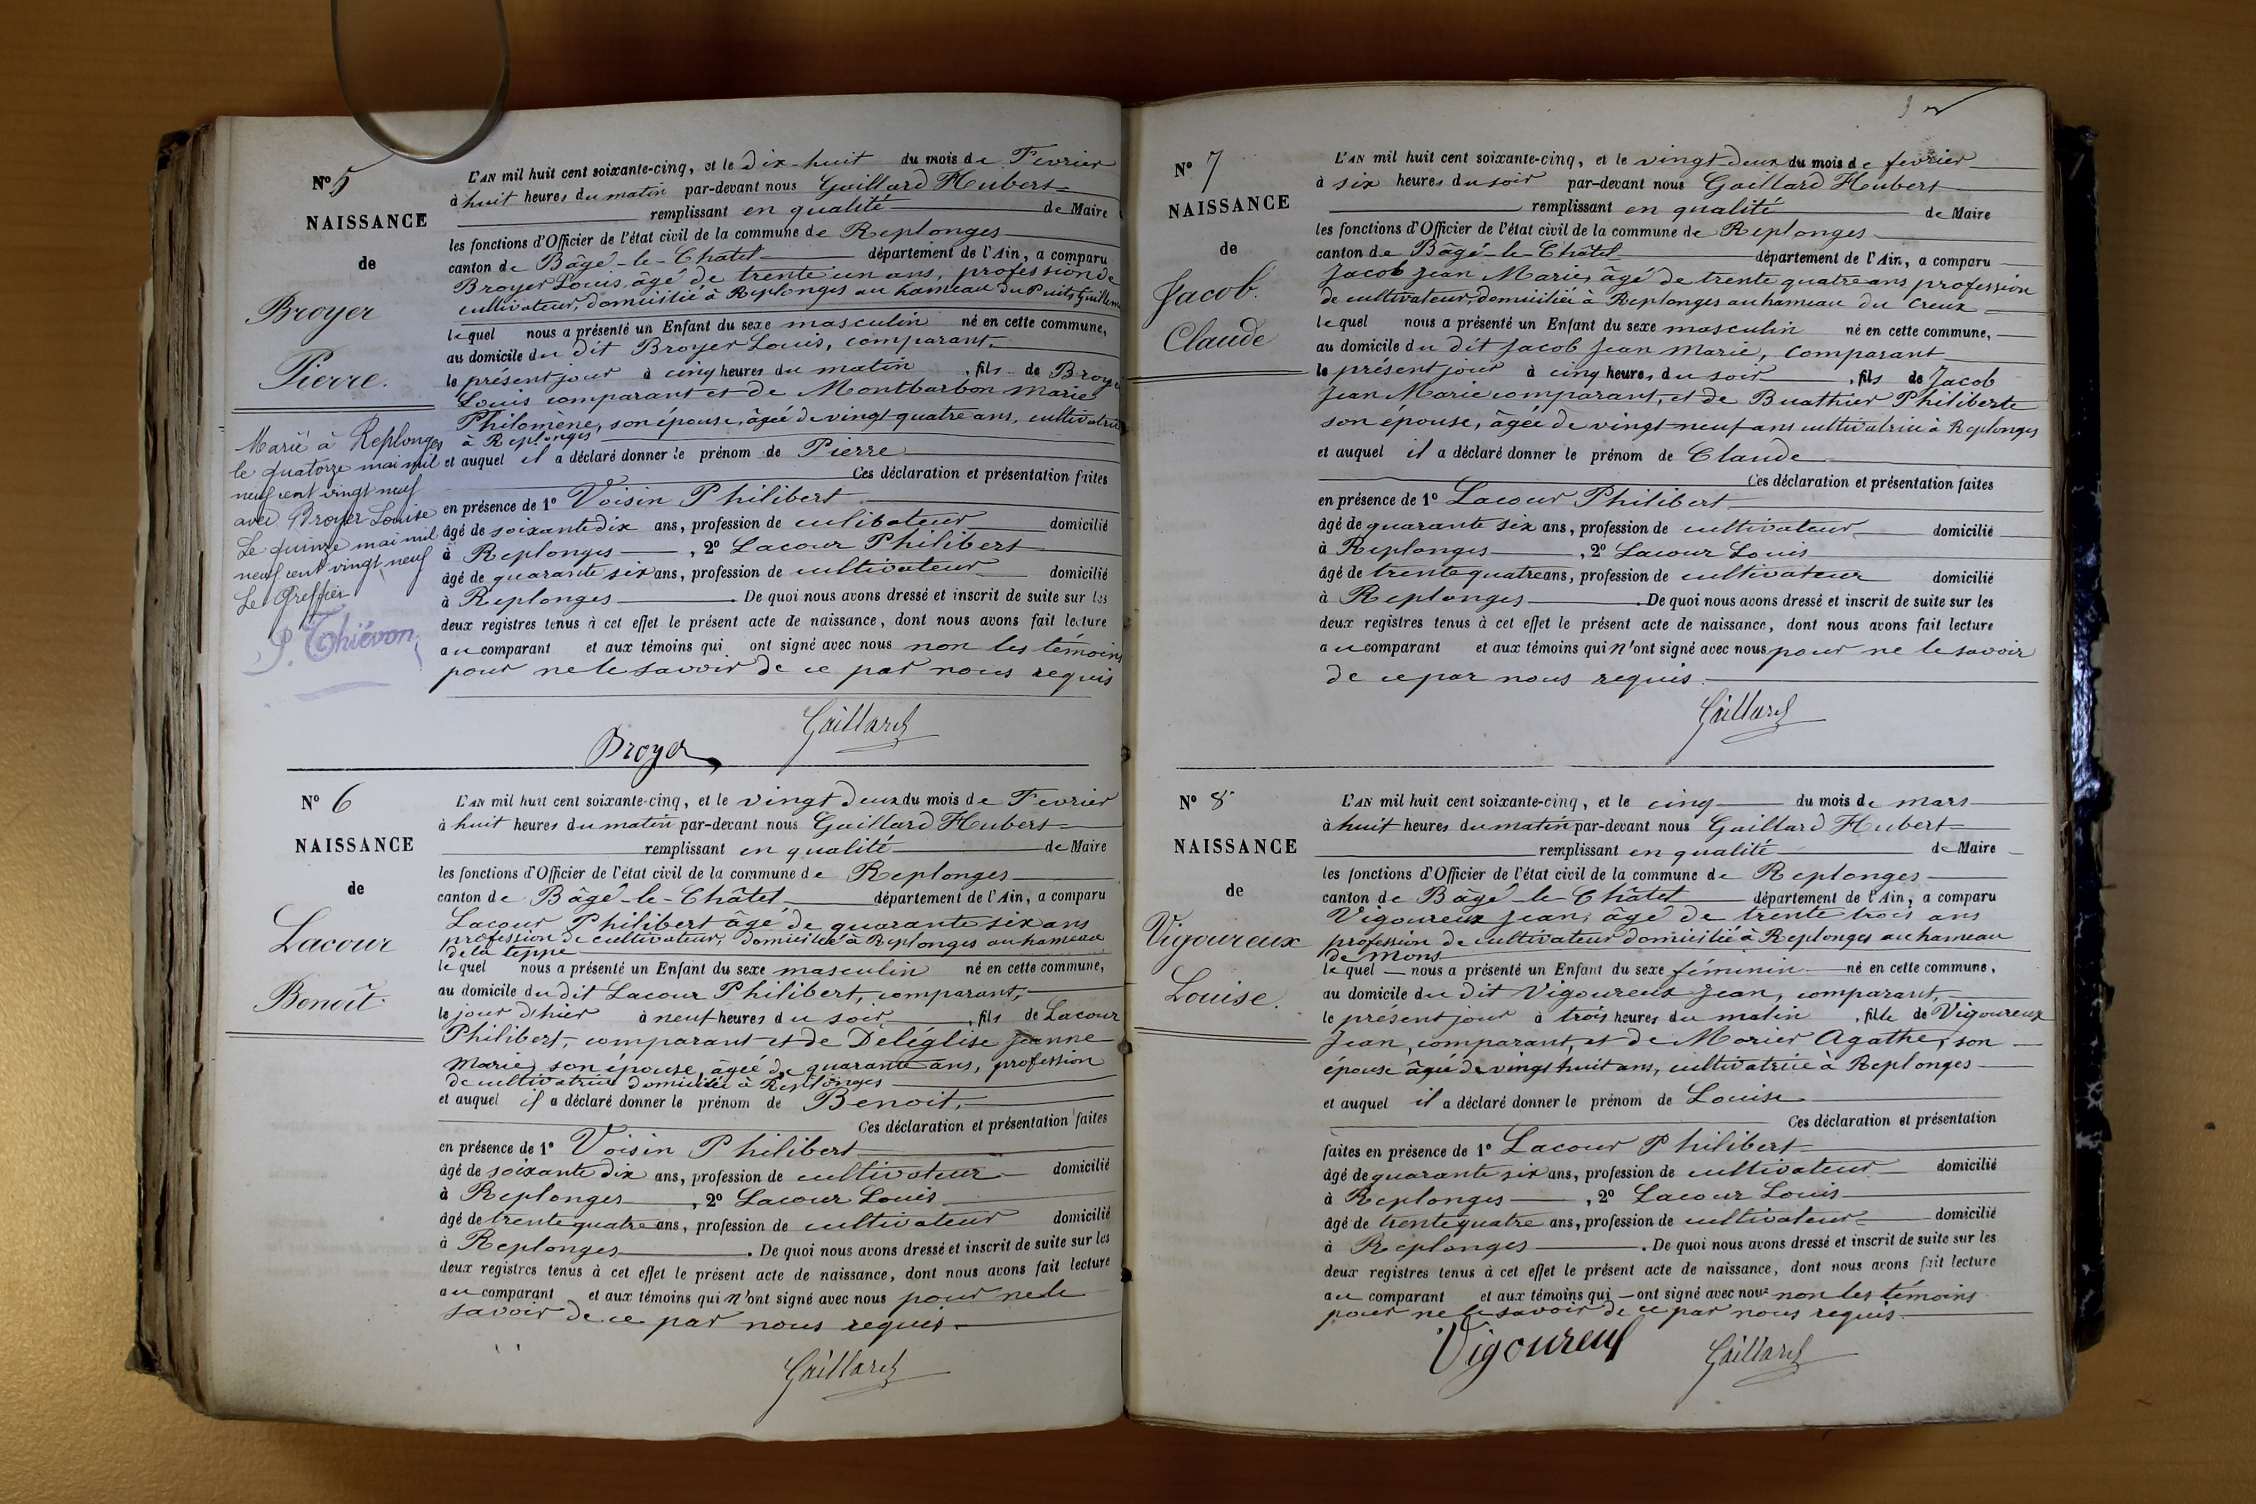 N° 5
NAISSANCE
de
Broyer
Pierre.
Marié à Replonges
le quatorze mai mil
neuf cent vingt neuf
avec Broyer Louise
Le quinze mai mil
neuf cent vingt neuf
Le Greffier
P. Thiévon
L'AN mil huit cent soixante-cinq, et le dix-huit du mois de Fevrier
à huit heures du matin par-devant nous Gaillard Hubert
remplissant en qualité de Maire
les fonctions d'Officier de l'état civil de la commune de Replonges
canton de Bâgé-le-Châtel département de l'Ain, a comparu
Broyer Louis, âgé de trente un ans, profession de
cultivateur, domicilié à Replonges au hameau du Puits Guillemin
lequel nous a présenté un Enfant du sexe masculin né en cette commune,
au domicile du dit Broyer Louis, comparant,
le présent jour à cinq heures du matin, fils de Broyer
Louis comparant et de Montbarbon Marie
Philomène, son épouse, âgée de vingt quatre ans, cultivatrice
à Replonges
et auquel il a déclaré donner le prénom de Pierre
Ces déclaration et présentation faites
en présence de 1° Voisin Philibert
âgé de soixante dix ans, profession de culibateur domicilié
à Replonges, 2° Lacour Philibert
âgé de quarante six ans, profession de cultivateur domicilié
à Replonges. De quoi nous avons dressé et inscrit de suite sur les
deux registres tenus à cet effet le présent acte de naissance, dont nous avons fait lecture
au comparant et aux témoins qui ont signé avec nous non les témoins
pour ne le savoir de ce par nous requis
Gaillard
Broyer
N° 6
NAISSANCE
de
Lacour
Benoît.
L'AN mil huit cent soixante-cinq, et le vingt deux du mois de Fevrier
à huit heures du matin par-devant nous Gaillard Hubert
remplissant en qualité de Maire
les fonctions d'Officier de l'état civil de la commune de Replonges
canton de Bâgé-le-Châtel département de l'Ain, a comparu
Lacour Philibert âgé de quarante six ans
profession de cultivateur, domicilié à Replonges au hameau
de la teppe
lequel nous a présenté un Enfant du sexe masculin né en cette commune,
au domicile du dit Lacour Philibert, comparant,
le jour d'hier à neuf heures du soir, fils de Lacour
Philibert, comparant et de Deléglise Jeanne
Marie, son épouse, âgée de quarante ans, profession
de cultivatrice domiciliée à Replonges
et auquel il a déclaré donner le prénom de Benoit,
Ces déclaration et présentation faites
en présence de 1° Voisin Philibert
âgé de soixante dix ans, profession de cultivateur domicilié
à Replonges, 2° Lacour Louis
âgé de trente quatre ans, profession de cultivateur domicilié
à Replonges. De quoi nous avons dressé et inscrit de suite sur les
deux registres tenus à cet effet le présent acte de naissance, dont nous avons fait lecture
au comparant et aux témoins qui n'ont signé avec nous pour ne le
savoir de ce par nous requis.
Gaillard
N° 7
NAISSANCE
de
Jacob.
Claude
L'AN mil huit cent soixante-cinq, et le vingt deux du mois de fevrier
à six heures du soir par-devant nous Gaillard Hubert
remplissant en qualité de Maire
les fonctions d'Officier de l'état civil de la commune de Replonges
canton de Bâgé-le-Châtel département de l'Ain, a comparu
Jacob Jean Marie, âgé de trente quatre ans profession
de cultivateur, domicilié à Replonges au hameau du Creux
lequel nous a présenté un Enfant du sexe masculin né en cette commune,
au domicile du dit Jacob Jean Marie, comparant
le présent jour à cinq heures du soir, fils de Jacob
Jean Marie comparant, et de Buathier Philiberte
son épouse, âgée de vingt-neuf ans cultivatrice à Replonges
et auquel il a déclaré donner le prénom de Claude
Ces déclaration et présentation faites
en présence de 1° Lacour Philibert
âgé de quarante six ans, profession de cultivateur domicilié
à Replonges, 2° Lacour Louis
âgé de trente quatre ans, profession de cultivateur domicilié
à Replonges. De quoi nous avons dressé et inscrit de suite sur les
deux registres tenus à cet effet le présent acte de naissance, dont nous avons fait lecture
au comparant et aux témoins qui n'ont signé avec nous pour ne le savoir
de ce par nous requis.
Gaillard
N° 8
NAISSANCE
de
Vigoureux
Louise.
L'AN mil huit cent soixante-cinq, et le cinq du mois de mars
à huit heures du matin par-devant nous Gaillard Hubert
remplissant en qualité de Maire
les fonctions d'Officier de l'état civil de la commune de Replonges
canton de Bâgé-le-Châtel département de l'Ain, a comparu
Vigoureux Jean, âgé de trente trois ans
profession de cultivateur domicilié à Replonges au hameau
de Mons
lequel nous a présenté un Enfant du sexe féminin né en cette commune,
au domicile du dit Vigoureux Jean, comparant,
le présent jour à trois heures du matin, fille de Vigoureux
Jean, comparant, et de Morier Agathe, son
épouse âgée de vingt huit ans, cultivatrice à Replonges
et auquel il a déclaré donner le prénom de Louise
Ces déclaration et présentation
faites en présence de 1° Lacour Philibert
âgé de quarante six ans, profession de cultivateur domicilié
à Replonges, 2° Lacour Louis
âgé de trente quatre ans, profession de cultivateur domicilié
à Replonges. De quoi nous avons dressé et inscrit de suite sur les
deux registres tenus à cet effet le présent acte de naissance, dont nous avons fait lecture
au comparant et aux témoins qui ont signé avec nous non les témoins
pour ne le savoir de ce par nous requis
Vigoureux
Gaillard